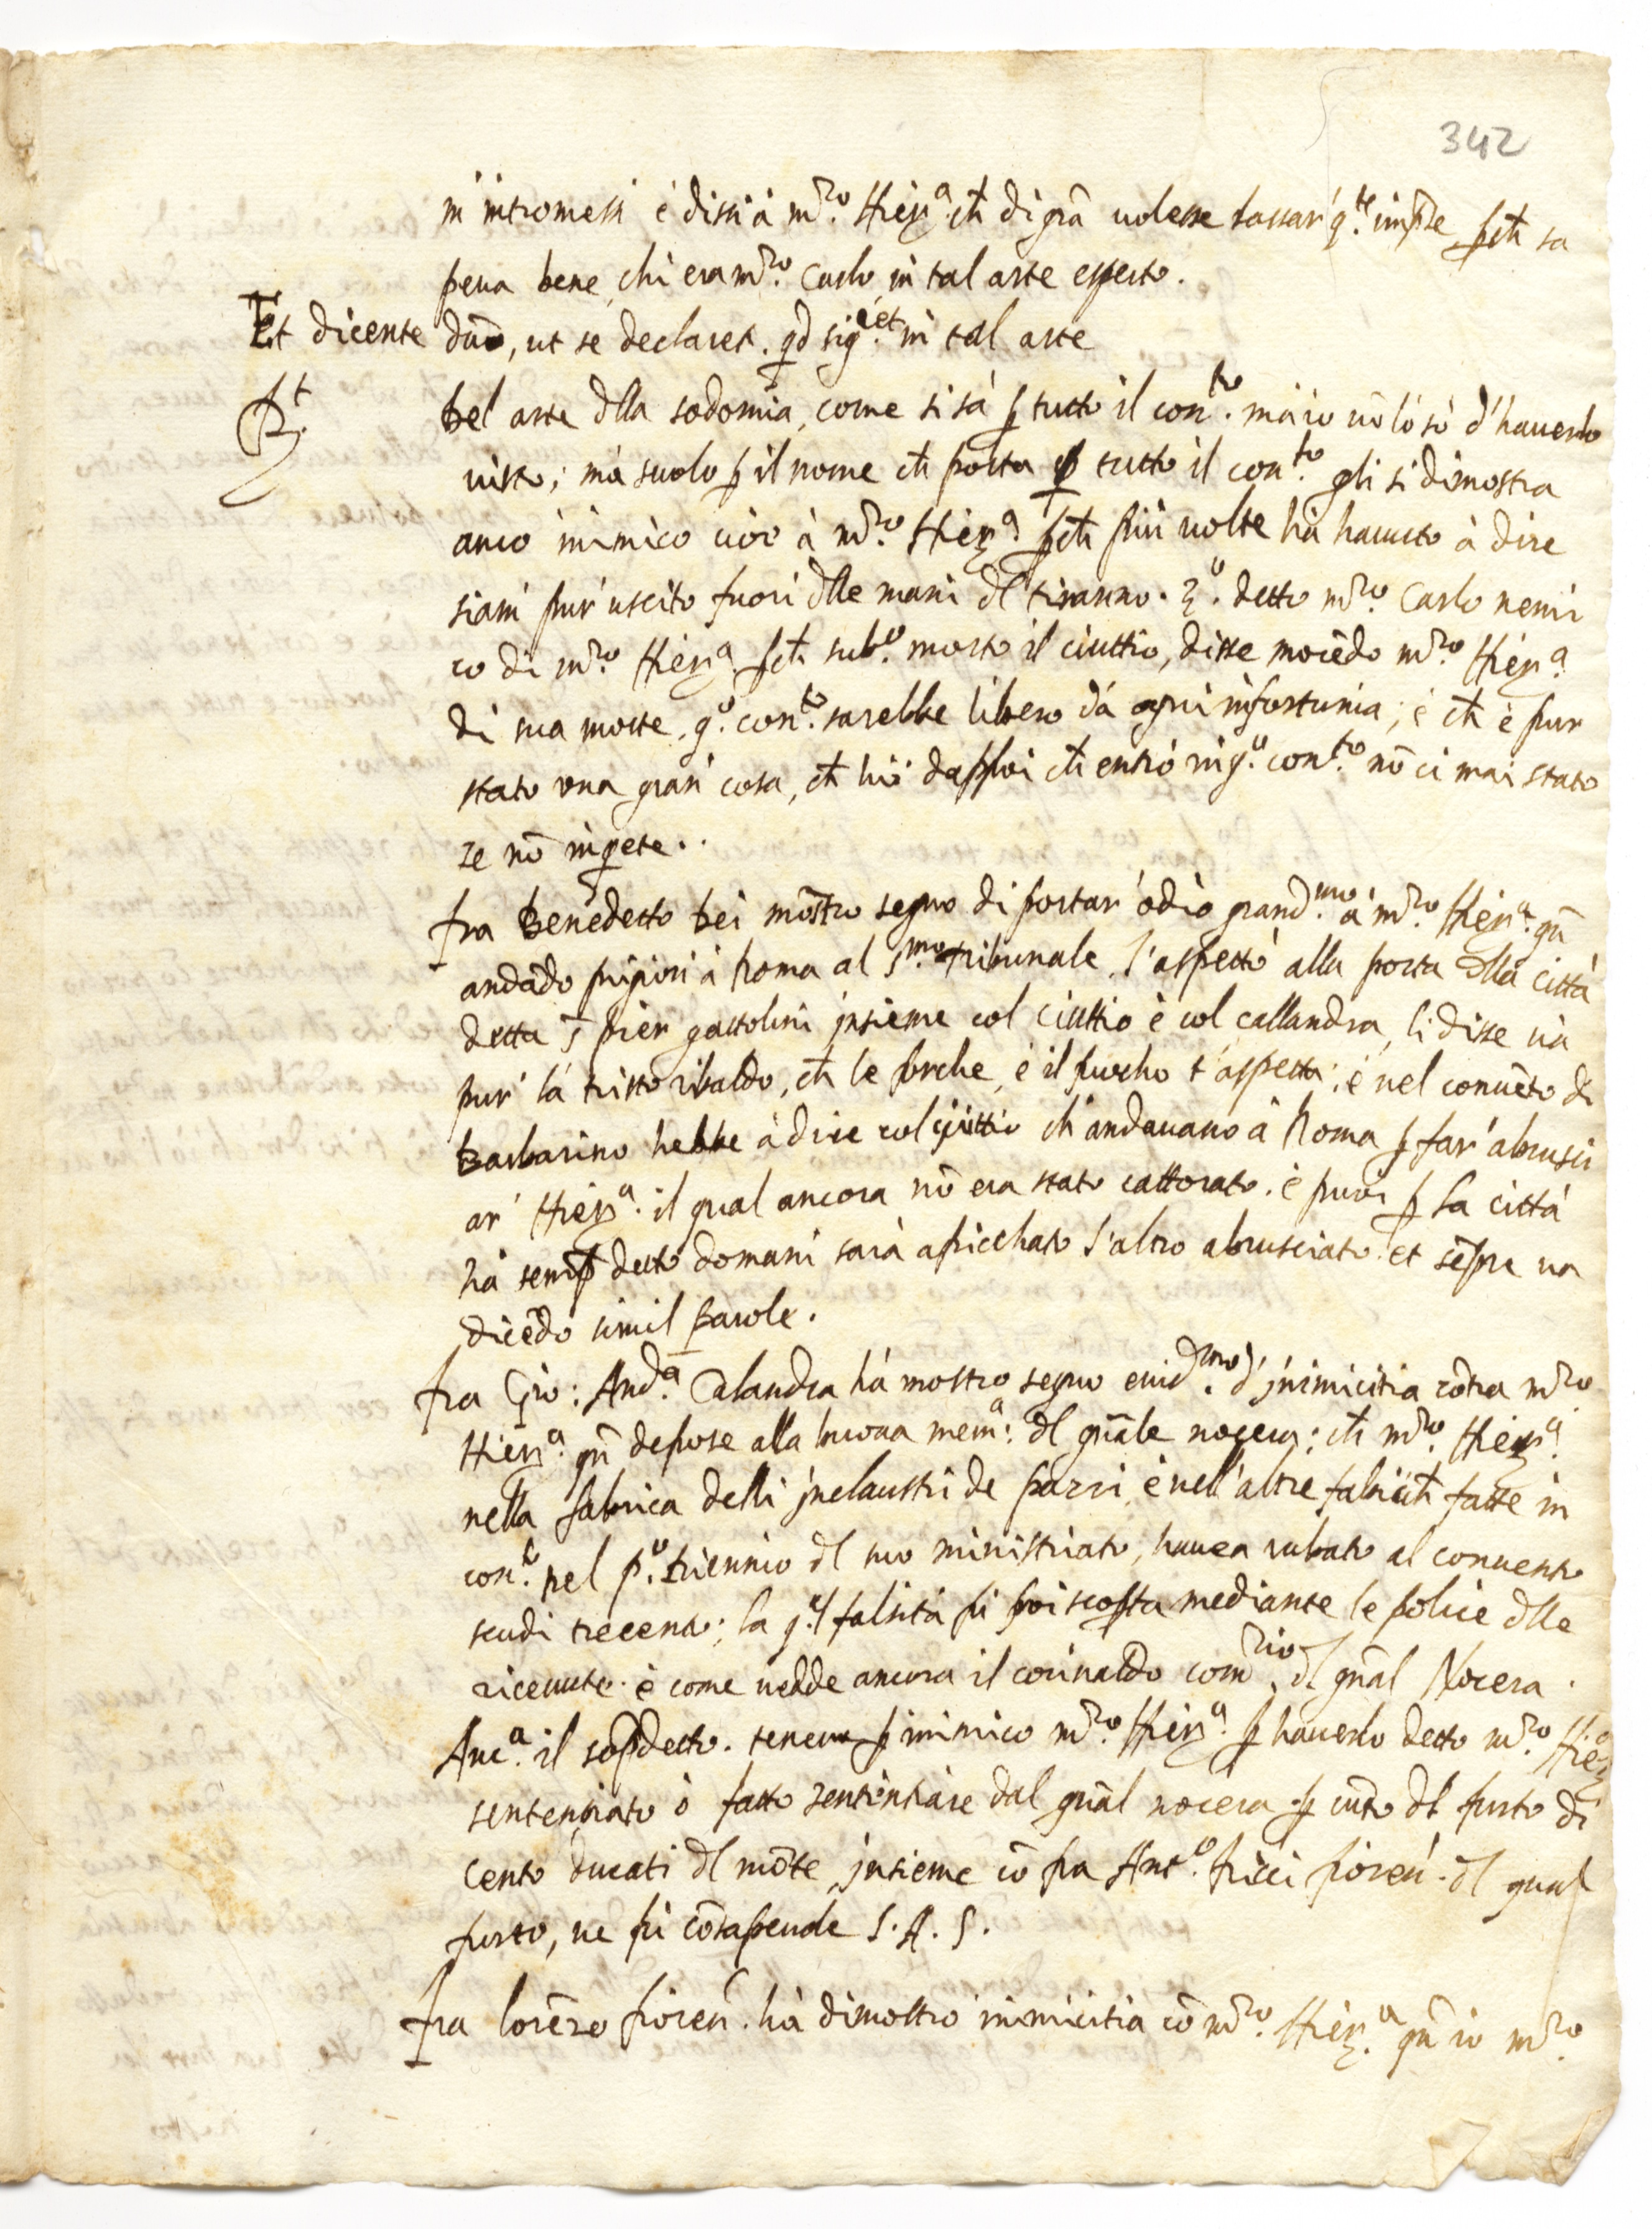 342
m'intromessi è dissi à m.ro Hier.a ch̄ di grā uolesse lassar' q.te imp̄se p̱ch̄ sa
peua bene, chi era m.ro Carlo in tal arte esp̱erto.
Et dicente dn̄o, ut se declaret. qd sig.cet in tal arte
R.t
Del arte d̄lla sodomia, come si sà p̱ tutto il con.to mà io nō lo sò d'hauerlo
uisto; mà suolo p̱ il nome ch̄ porta p̱ tutto il con.to gli si dimostra
anco inimico cioè à m.ro Hier.a p̱ch̄ più uolte hà hauuto à dire
siam pur' uscito fuori d̄lle mani d̄l tiranno. 3.o detto m.ro Carlo nemi
co di m.ro Hier.a p̱ch̄ sub.o morto il ciuttio, disse morēdo m.ro Hier.a
di sua morte, q.o con.to sarebbe libero dà ogni infortunia; è ch̄ è pur
stato una gran cosa, ch̄ lui dapp̱oi ch̄ entrò in q.o con.to nō ci mai stato
se nō inq̱ete..
fra Benedetto bei mōstro segno di portar' odio grand.mo à m.ro Hier.a qn̄
andādo prigion' à Roma al S.mo tribunale, l'aspettò alla porta d̄lla città
detta S pier gattolini jnsieme col ciuttio è col callandra, li disse uà
pur' là tristo ribaldo, ch̄ le forche, è il fuocho t'aspetta; è nel conuēto di
Barbarino hebbe à dire col ciuttio ch̄ andauano à Roma p̱ far' abrusci
ar' Hier.a il qual ancora nō era stato catturato. è fuor p̱ la città
hà semp̱ detto domani sarà apicchato l'altro abrusciato. et sēpre ua
dicēdo simil parole.
fra Gio: And.a Calandra hà mostro segno euid.mo d' jnimicitia cōtra m.ro
Hier.a qn̄ depose alla buona mem.a d̄l gn̄ale nocera; ch̄ m.ro Hier.a
nella fabrica delli jnclaustri de pazzi, è nell'altre fabrich̄ fatte in
con.to nel p.o triennio d̄l suo ministriato, hauea rubato al conuento
scudi trecento; la q.l falsità fù poi scop̱ta mediante le police d̄lle
riceuute. è come uedde ancora il corinaldo com.rio d̄l gn̄al Nocera.
Anc.a il sop̱detto. teneua p̱ inimico m.ro Hier.a p̱ hauerlo detto m.ro Hier.a
sententiato ò fatto sententiare dal gn̄al nocera p̱ cōto d̄l furto di
cento ducati d̄l mōte, jnsieme cō fra Ant.o ricci fioren'. d̄l qual
furto, ne fù cōsapeuole S. A. S.
fra lorēzo fioren'. hà dimostro inimicitia cō m.ro Hier.a qn̄ io m.ro